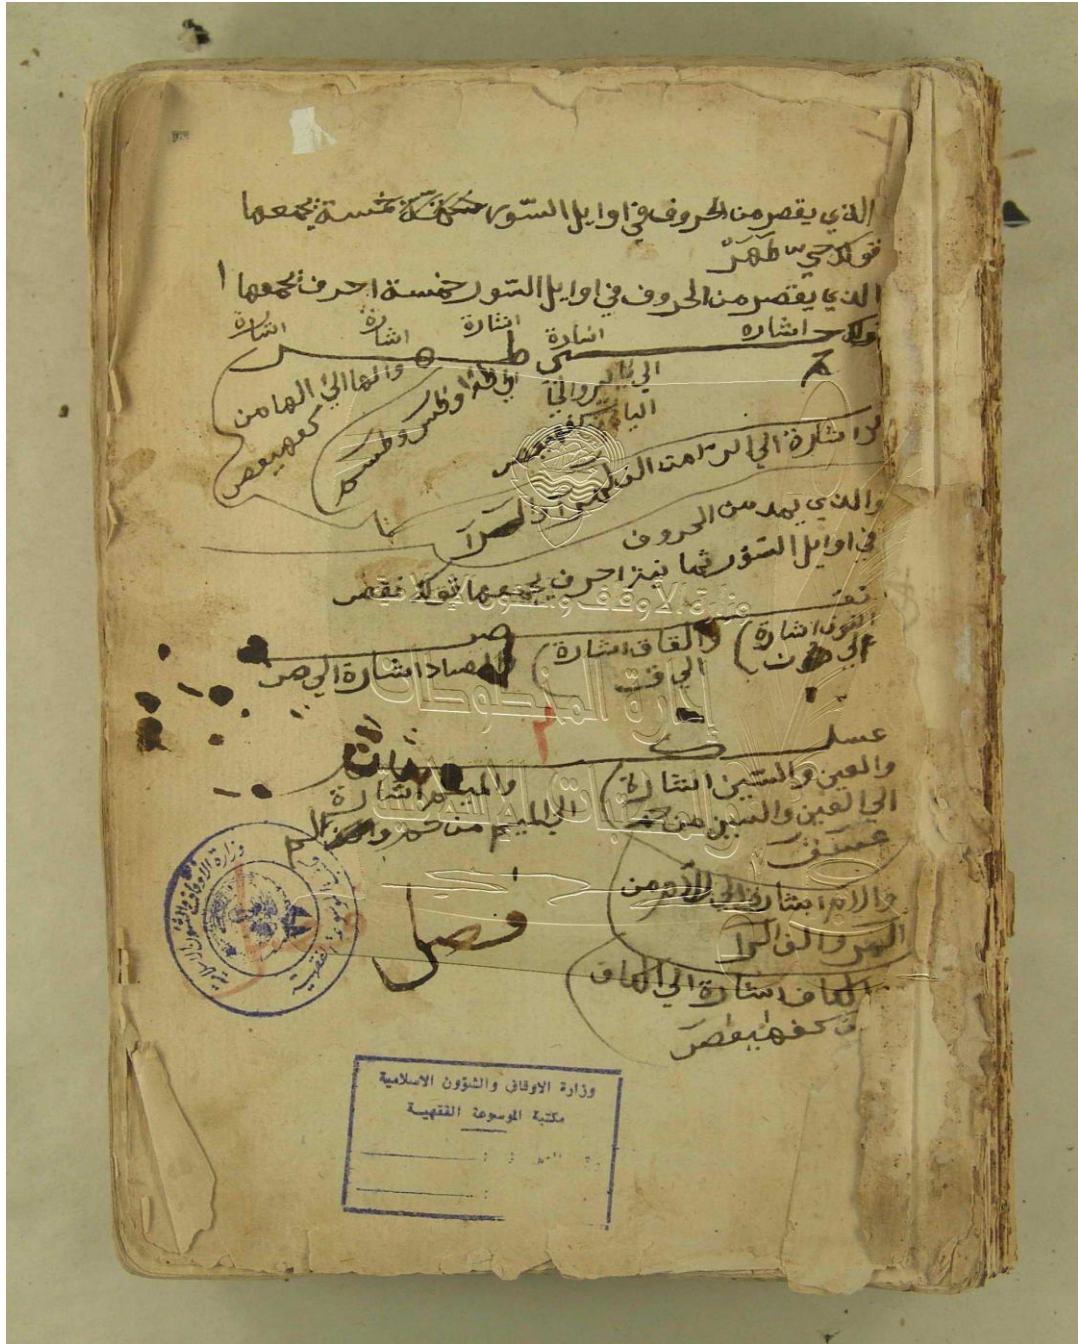 الذي يقصر من الحروف في اوايل السور خمسة يجمعها
قولك حي طهر
الذي يقصر من الحروف في اوايل السور خمسة احرف يجمعها
قولك حي طهر
اشاره اشارة اشارة اشارة اشارة
الي يا يس والي
اليا من كهيعص
الي طه او طس و طسم
والها الي الها من
كهيعص
را اشارة الي الر
والذي يمد من الحروف
في اوايل السور ثمانية احرف يجمعها قولك نقص
نقص
النون اشارة
الي ن
والقاف اشارة
الي ق
والصاد اشارة الي ص
عسلكم
والعين والسين اشارة
الي العين والسين من حم
عسق
والميم اشارة
الي الميم من حم و الم
والام اشارة الي الام من
المر والف الرا
الكاف اشارة الي الكاف
من كهيعص
فصل
وزارة الأوقاف والشئون الإسلامية
إدارة المخطوطات
والمكتبات الإسلامية
وزارة الاوقاف والشؤون الاسلامية
مكتبة الموسوعة الفقهية